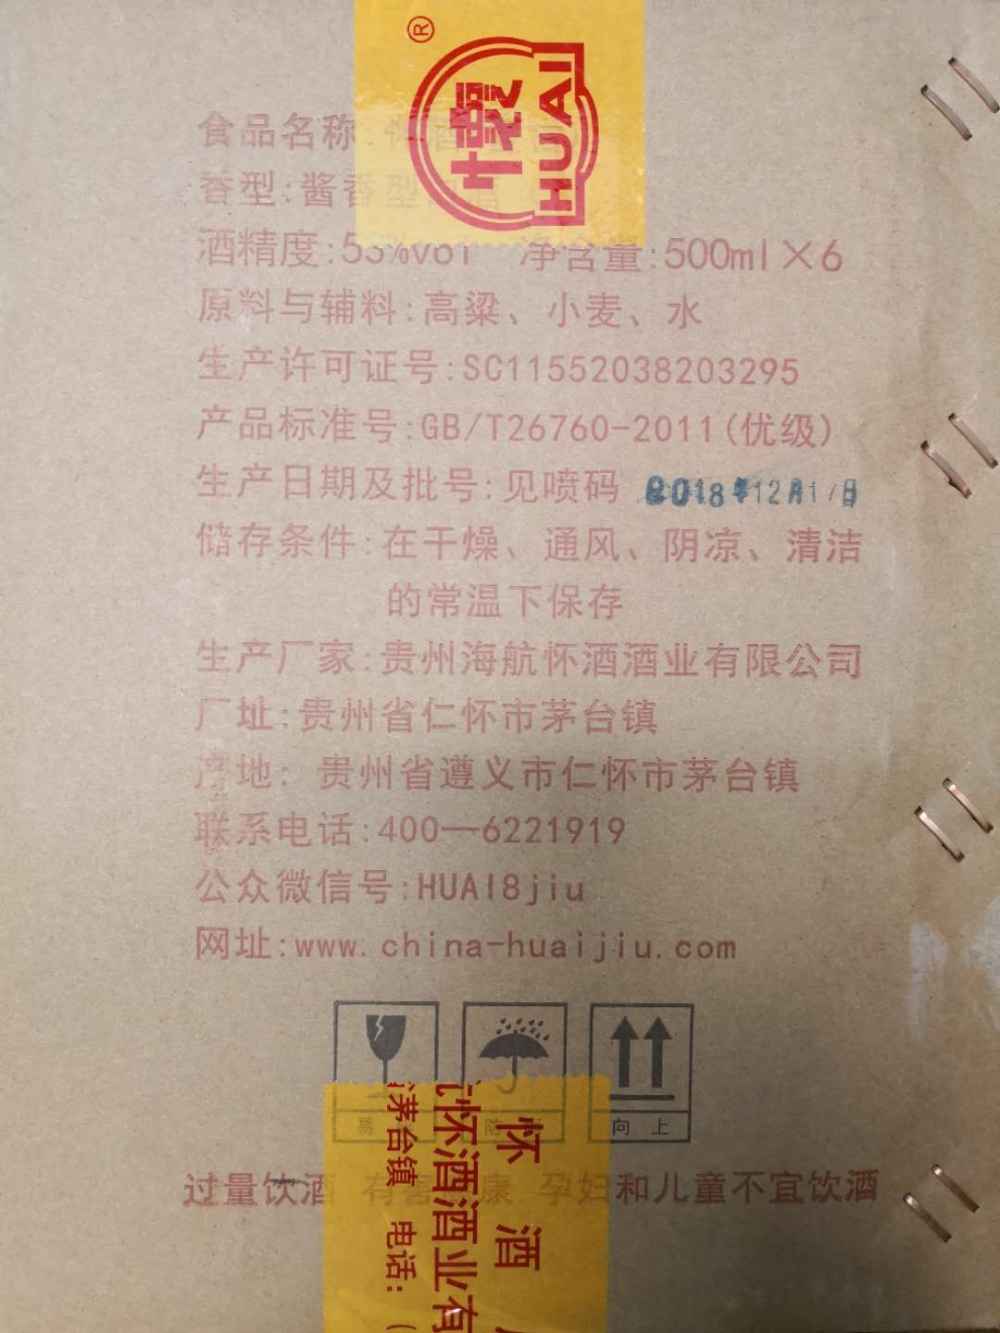 懷
HUAI
®
食品名称:
香型:酱香型
酒精度:53%vol 净含量:500ml×6
原料与辅料:高粱、小麦、水
生产许可证号:SC11552038203295
产品标准号:GB/T26760-2011(优级)
生产日期及批号:见喷码 2018年12月17日
储存条件:在干燥、通风、阴凉、清洁
的常温下保存
生产厂家:贵州海航怀酒酒业有限公司
厂址:贵州省仁怀市茅台镇
产地: 贵州省遵义市仁怀市茅台镇
联系电话:400—6221919
公众微信号:HUAI8jiu
网址:www.china-huaijiu.com
向上
过量饮酒 有害 康 孕妇和儿童不宜饮酒
怀酒
怀酒酒业有
茅台镇 电话:(